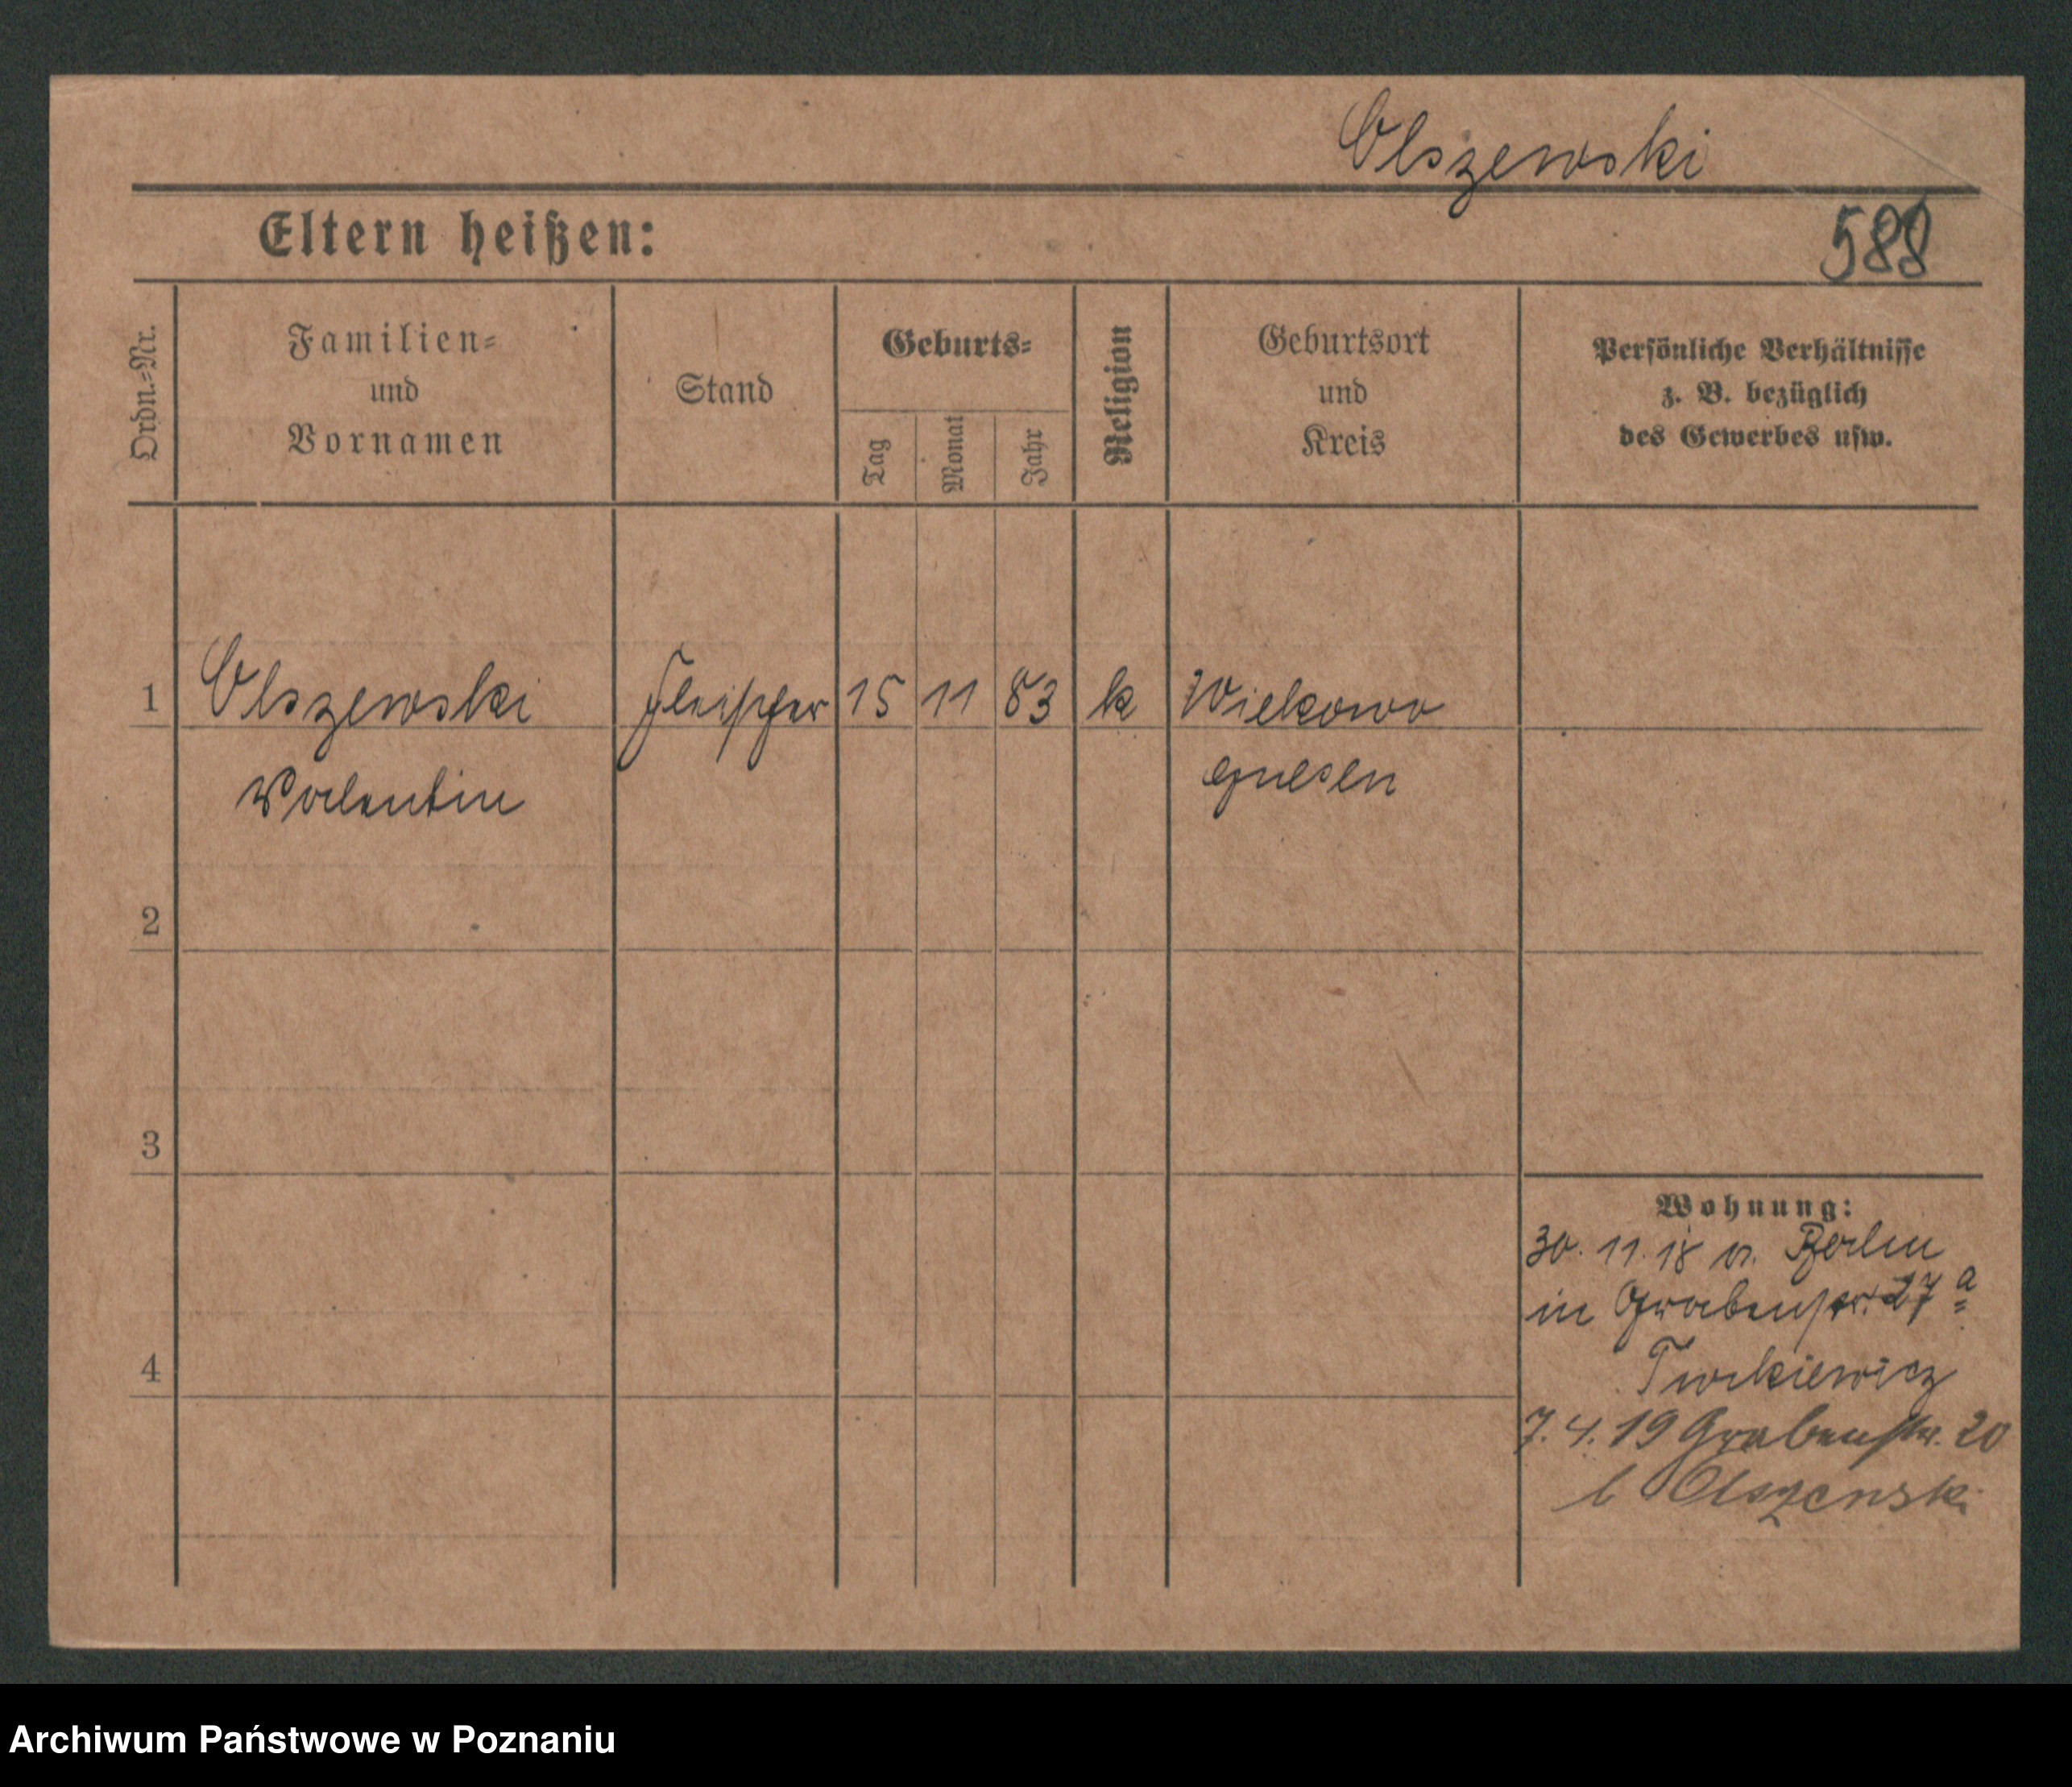 Olszewski
Eltern heißen:
588
Ordn.=Nr.
Familien=
und
Vornamen
Stand
Geburts=
Tag
Monat
Jahr
Religion
Geburtsort
und
Kreis
Persönliche Verhältnisse
z. B. bezüglich
des Gewerbes usw.
1 Olszewski Fleischer 15 11 83 k Wiekowo
Valentin Gnesen
2
3
Wohnung:
30. 11. 18 v. Berlin
in Grabenstr. 27 a
4
7. 4. 19 Grabenstr. 20
b Olszewski
Archiwum Państwowe w Poznaniu